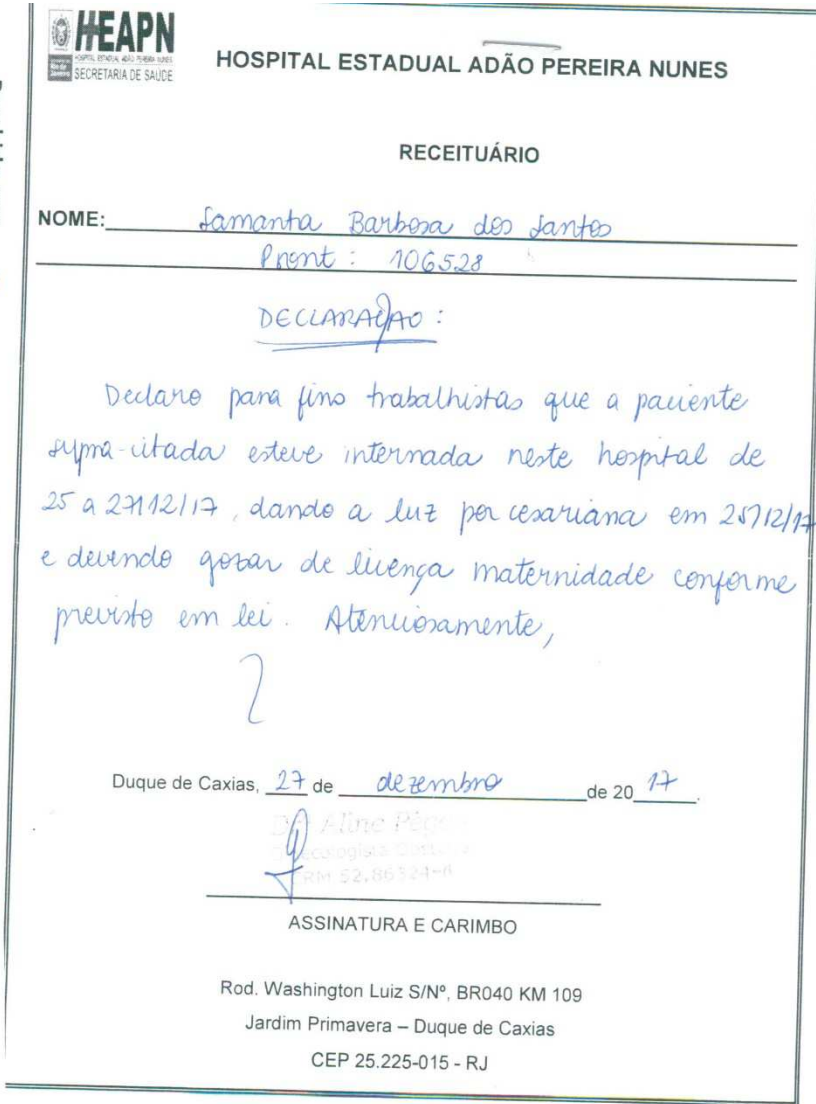 HEAPN
HOSPITAL ESTADUAL ADÃO PEREIRA NUNES
SECRETARIA DE SAÚDE
HOSPITAL ESTADUAL ADÃO PEREIRA NUNES
RECEITUÁRIO
NOME: Samanta Barbosa dos Santos
Pront: 106528
DECLARAÇÃO:
Declaro para fins trabalhistas que a paciente
supra-citada esteve internada neste hospital de
25 a 27/12/17, dando a luz por cesariana em 25/12/17
e devendo gozar de licença maternidade conforme
previsto em lei. Atenciosamente,
Duque de Caxias, 27 de dezembro de 20 17.
Aline
CRM 52.86324-0
ASSINATURA E CARIMBO
Rod. Washington Luiz S/Nº, BR040 KM 109
Jardim Primavera – Duque de Caxias
CEP 25.225-015 - RJ